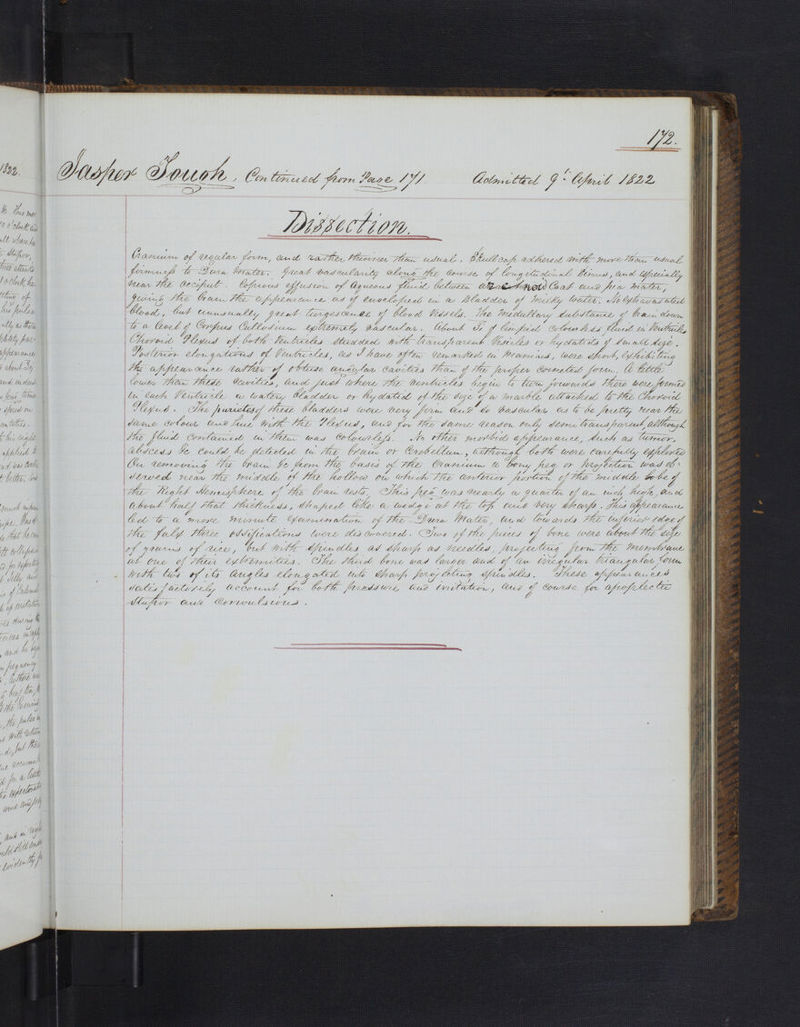 172.
Jasper Tough. Continued from Page 171 Admitted 9th April 1822
Dissection.
Cranium of regular form, and rather thinner than usual. Skullcap adhered with more than usual
firmness to Dura Mater. Great vascularity along the course of longitudinal Sinus, and especially
near the occiput. Copious effusion of aqueous fluid between arachnoid Coat and pia mater,
giving the brain the appearance as if enveloped in a Bladder of milky water. No extravasated
blood, but unusually great turgescence of blood vessels. The medullary substance of brain down
to a level of Corpus Callosum extremely vascular. About of limpid colourless fluid in Ventricles
Choroid Plexus of both Ventricles studded with transparent Vesicles or hydatids of small size.
Posterior elongations of Ventricles, as I have often remarked in Maniacs, were short, exhibiting
the appearance rather of obtuse angular cavities than of the proper cornuted form. A little
lower than these cavities, and just where the ventricles begin to turn forwards there were formed
in each Ventricle a watery bladder or hydatid of the size of a marble attached to the Choroid
Plexus. The parietes of these bladders were very firm and so vascular as to be pretty near the
same colour and hue with the Plexus, and for the same reason only semitransparent, although
the fluid contained in them was colourless. No other morbid appearance, such as tumor,
abscess &c could be detected in the brain or Cerebellum, although both were carefully explored
On removing the brain &c from the basis of the Cranium a bony peg or projection was ob
served near the middle of the hollow on which the anterior portion of the middle lobe of
the Right Hemisphere of the brain rests. This peg was nearly a quarter of an inch high, and
about half that thickness, shaped like a wedge at the top and very sharp. This appearance
led to a more minute examination of the Dura Mater, and towards the inferior edge of
the falx three ossifications were discovered. Two of the pieces of bone were about the size
of grains of rice, but with spindles as sharp as needles, projecting from the membrane
at one of their extremities. The third bone was larger and of an irregular triangular form
with two of its angles elongated into sharp projecting spindles. These appearances
satisfactorily account for both pressure and irritation, and of course for apoplectic
stupor and convulsions.